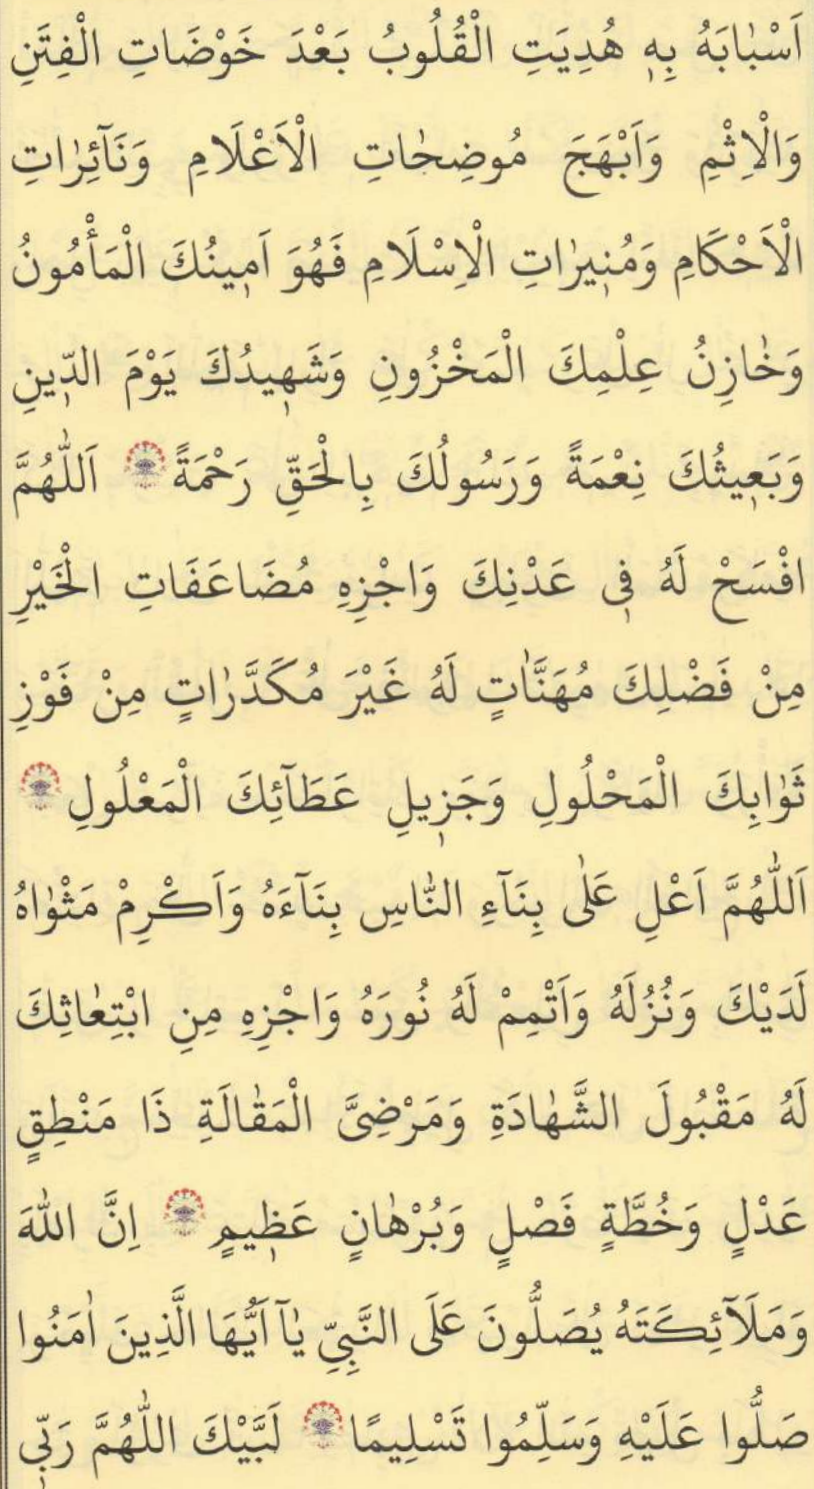 اَسْبَابَهُ بِهِ هُدِيَتِ الْقُلُوبُ بَعْدَ خَوْضَاتِ الْفِتَنِ
وَالْاِثْمِ وَاَبْهَجَ مُوضِحَاتِ الْاَعْلَامِ وَنَآئِرَاتِ
الْاَحْكَامِ وَمُنِيرَاتِ الْاِسْلَامِ فَهُوَ اَمِينُكَ الْمَأْمُونُ
وَخَازِنُ عِلْمِكَ الْمَخْزُونِ وَشَهِيدُكَ يَوْمَ الدِّينِ
وَبَعِيثُكَ نِعْمَةً وَرَسُولُكَ بِالْحَقِّ رَحْمَةً اَللّٰهُمَّ
افْسَحْ لَهُ فِى عَدْنِكَ وَاجْزِهِ مُضَاعَفَاتِ الْخَيْرِ
مِنْ فَضْلِكَ مُهَنَّاتٍ لَهُ غَيْرَ مُكَدَّرَاتٍ مِنْ فَوْزِ
ثَوَابِكَ الْمَحْلُولِ وَجَزِيلِ عَطَآئِكَ الْمَعْلُولِ
اَللّٰهُمَّ اَعْلِ عَلٰى بِنَآءِ النَّاسِ بِنَآءَهُ وَاَكْرِمْ مَثْوَاهُ
لَدَيْكَ وَنُزُلَهُ وَاَتْمِمْ لَهُ نُورَهُ وَاجْزِهِ مِنِ ابْتِعَاثِكَ
لَهُ مَقْبُولَ الشَّهَادَةِ وَمَرْضِىَّ الْمَقَالَةِ ذَا مَنْطِقٍ
عَدْلٍ وَخُطَّةٍ فَصْلٍ وَبُرْهَانٍ عَظِيمٍ اِنَّ اللّٰهَ
وَمَلَآئِكَتَهُ يُصَلُّونَ عَلَى النَّبِىِّ يَآ اَيُّهَا الَّذِينَ اٰمَنُوا
صَلُّوا عَلَيْهِ وَسَلِّمُوا تَسْلِيمًا لَبَّيْكَ اللّٰهُمَّ رَبِّى